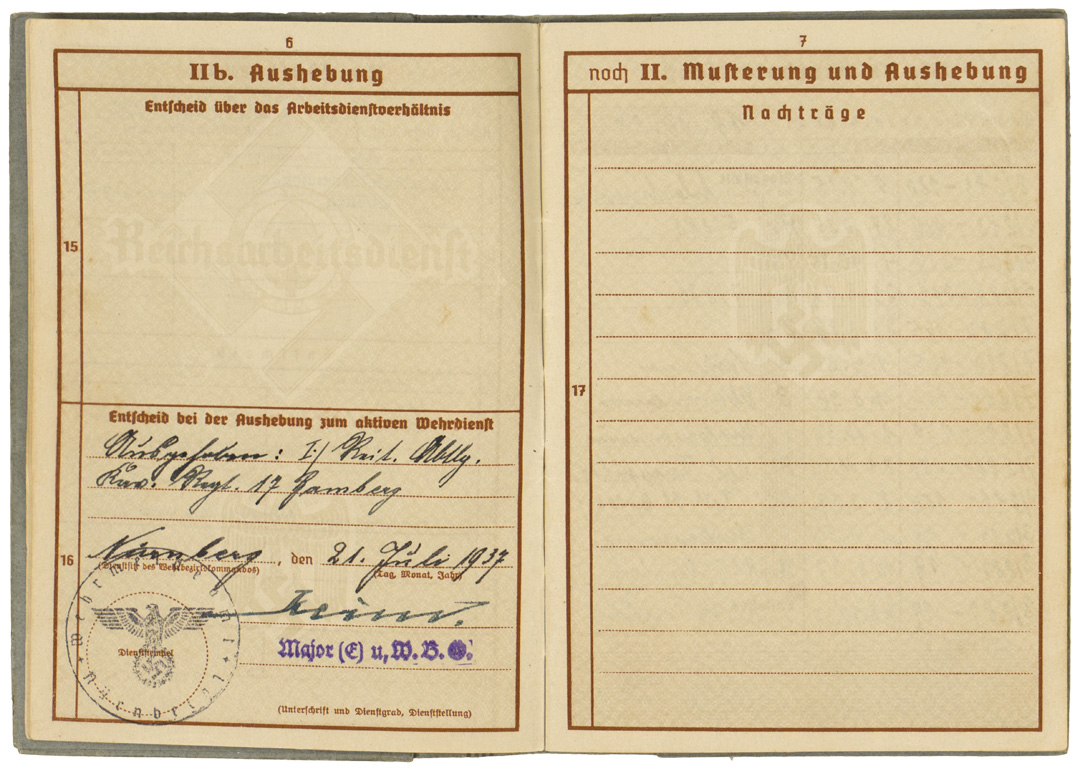 6
IIb. Aushebung
Entscheid über das Arbeitsdienstverhältnis
15
Reichsarbeitsdienst
Entscheid bei der Aushebung zum aktiven Wehrdienst
Ausgehoben: I./ Reit. Abtlg.
Kav. Regt. 17 Bamberg
16
Nürnberg, den 21. Juli 1937
(Dienstsitz des Wehrbezirkkommandos) (Tag, Monat, Jahr)
Dienststempel
Major (E) u. W. B. O.
(Unterschrift und Dienstgrad, Dienststellung)
7
noch II. Musterung und Aushebung
Nachträge
17